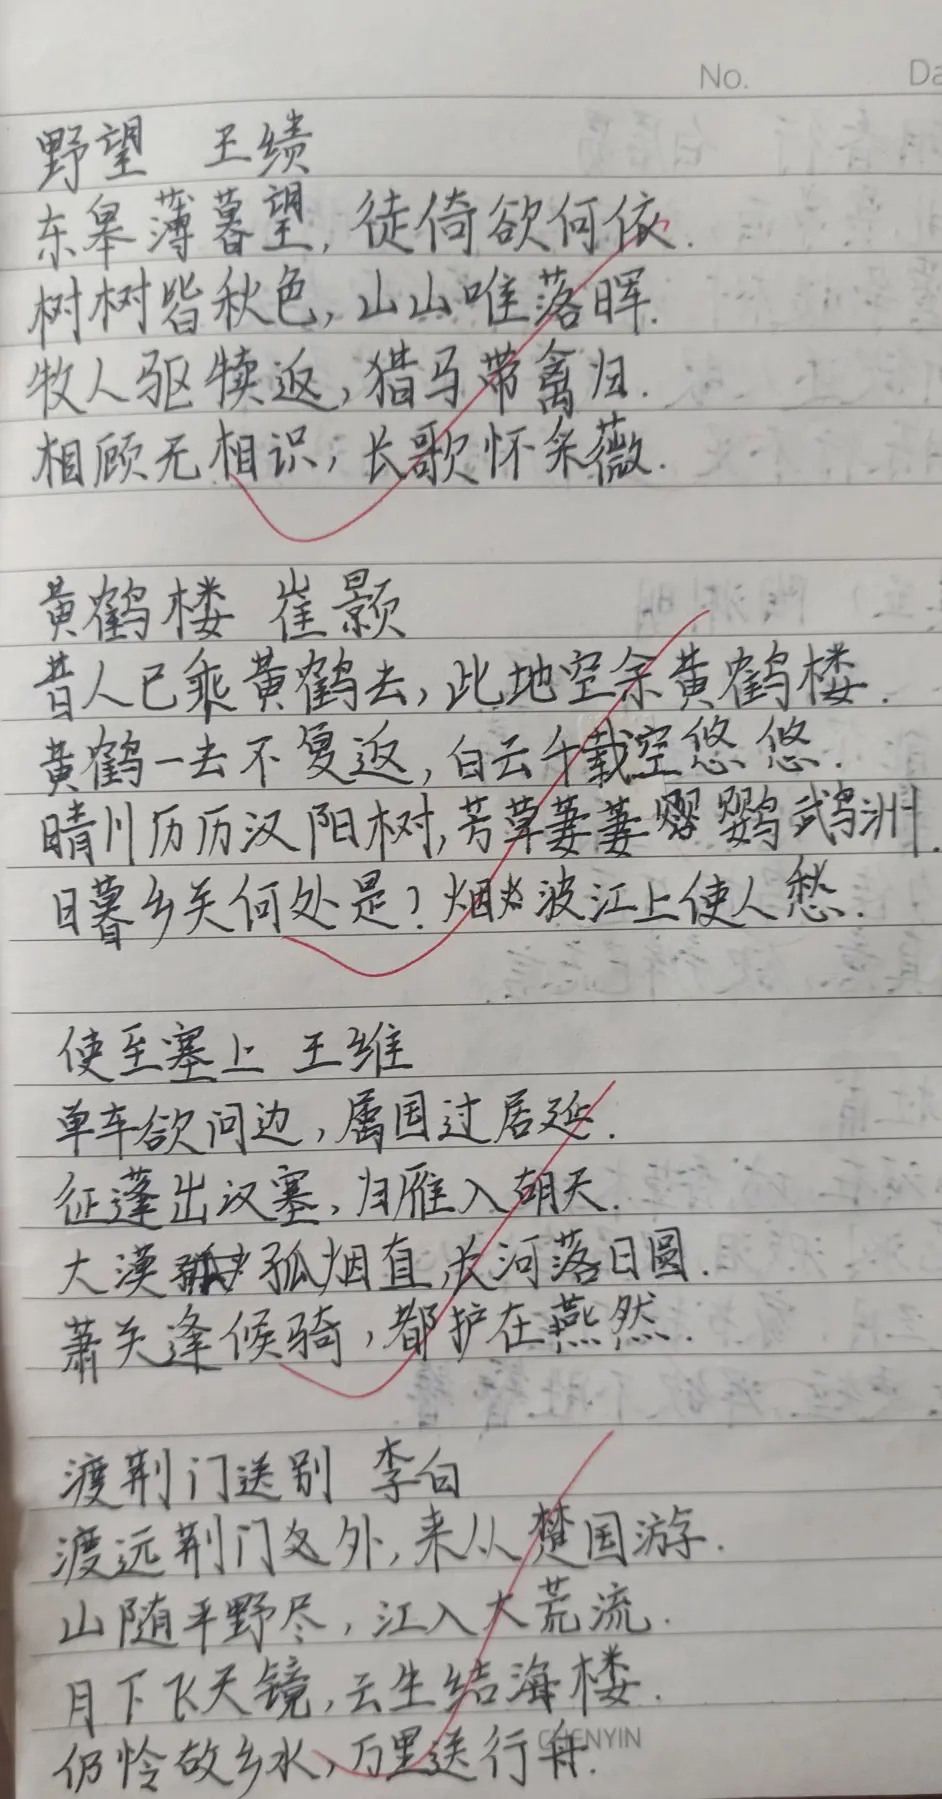 No. Da
野望 王绩
东皋薄暮望,徒倚欲何依.
树树皆秋色,山山唯落晖.
牧人驱犊返,猎马带禽归.
相顾无相识,长歌怀采薇.
黄鹤楼 崔颢
昔人已乘黄鹤去,此地空余黄鹤楼.
黄鹤一去不复返,白云千载空悠悠.
晴川历历汉阳树,芳草萋萋鹦鹉洲.
日暮乡关何处是?烟波江上使人愁.
使至塞上 王维
单车欲问边,属国过居延.
征蓬出汉塞,归雁入胡天.
大漠孤烟直,长河落日圆.
萧关逢候骑,都护在燕然.
渡荆门送别 李白
渡远荆门外,来从楚国游.
山随平野尽,江入大荒流.
月下飞天镜,云生结海楼.
仍怜故乡水,万里送行舟.
CHENYIN